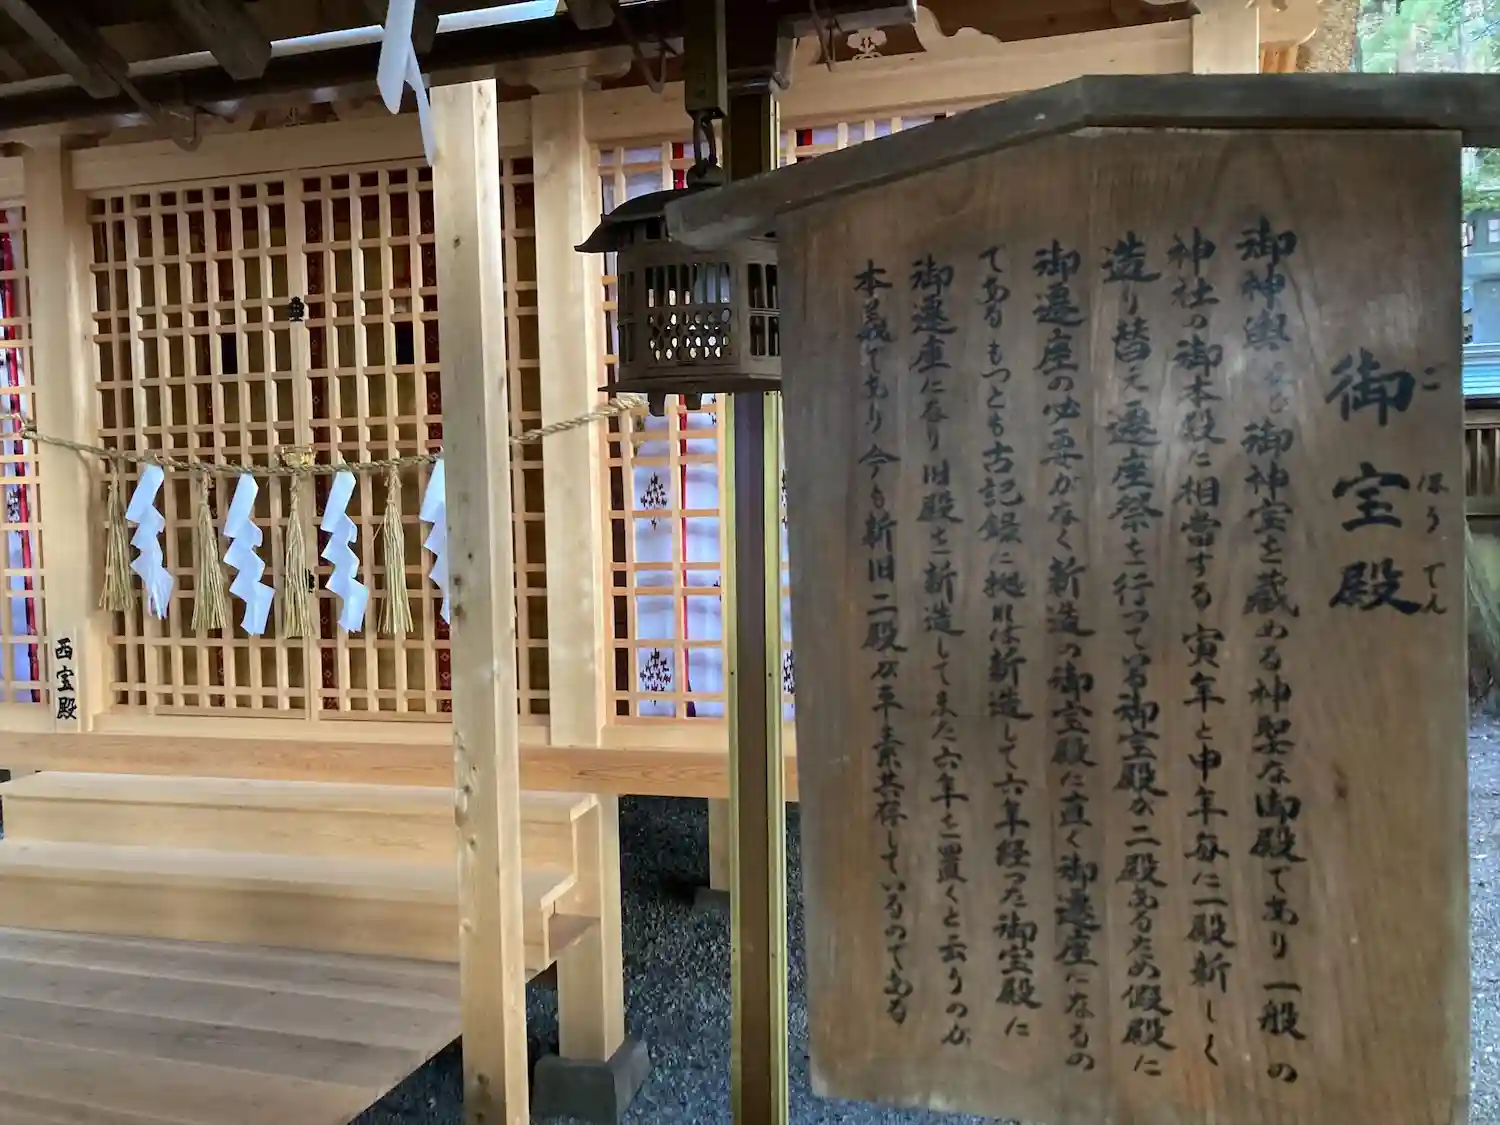 御宝殿
ごほうでん
御神輿なる御神宝を蔵める神聖な御殿であり一般の
神社の御本殿に相当する 寅年と申年毎に一殿新しく
造り替え遷座祭を行って居る御宝殿が二殿あるため假殿に
御遷座の必要がなく新造の御宝殿に直く御遷座になるの
である もっとも古記録に拠れば新造して六年経った御宝殿に
御遷座になり旧殿を新造してまた六年を置くと云うのが
本義であり今も新旧二殿が平素共存しているのである
西宝殿